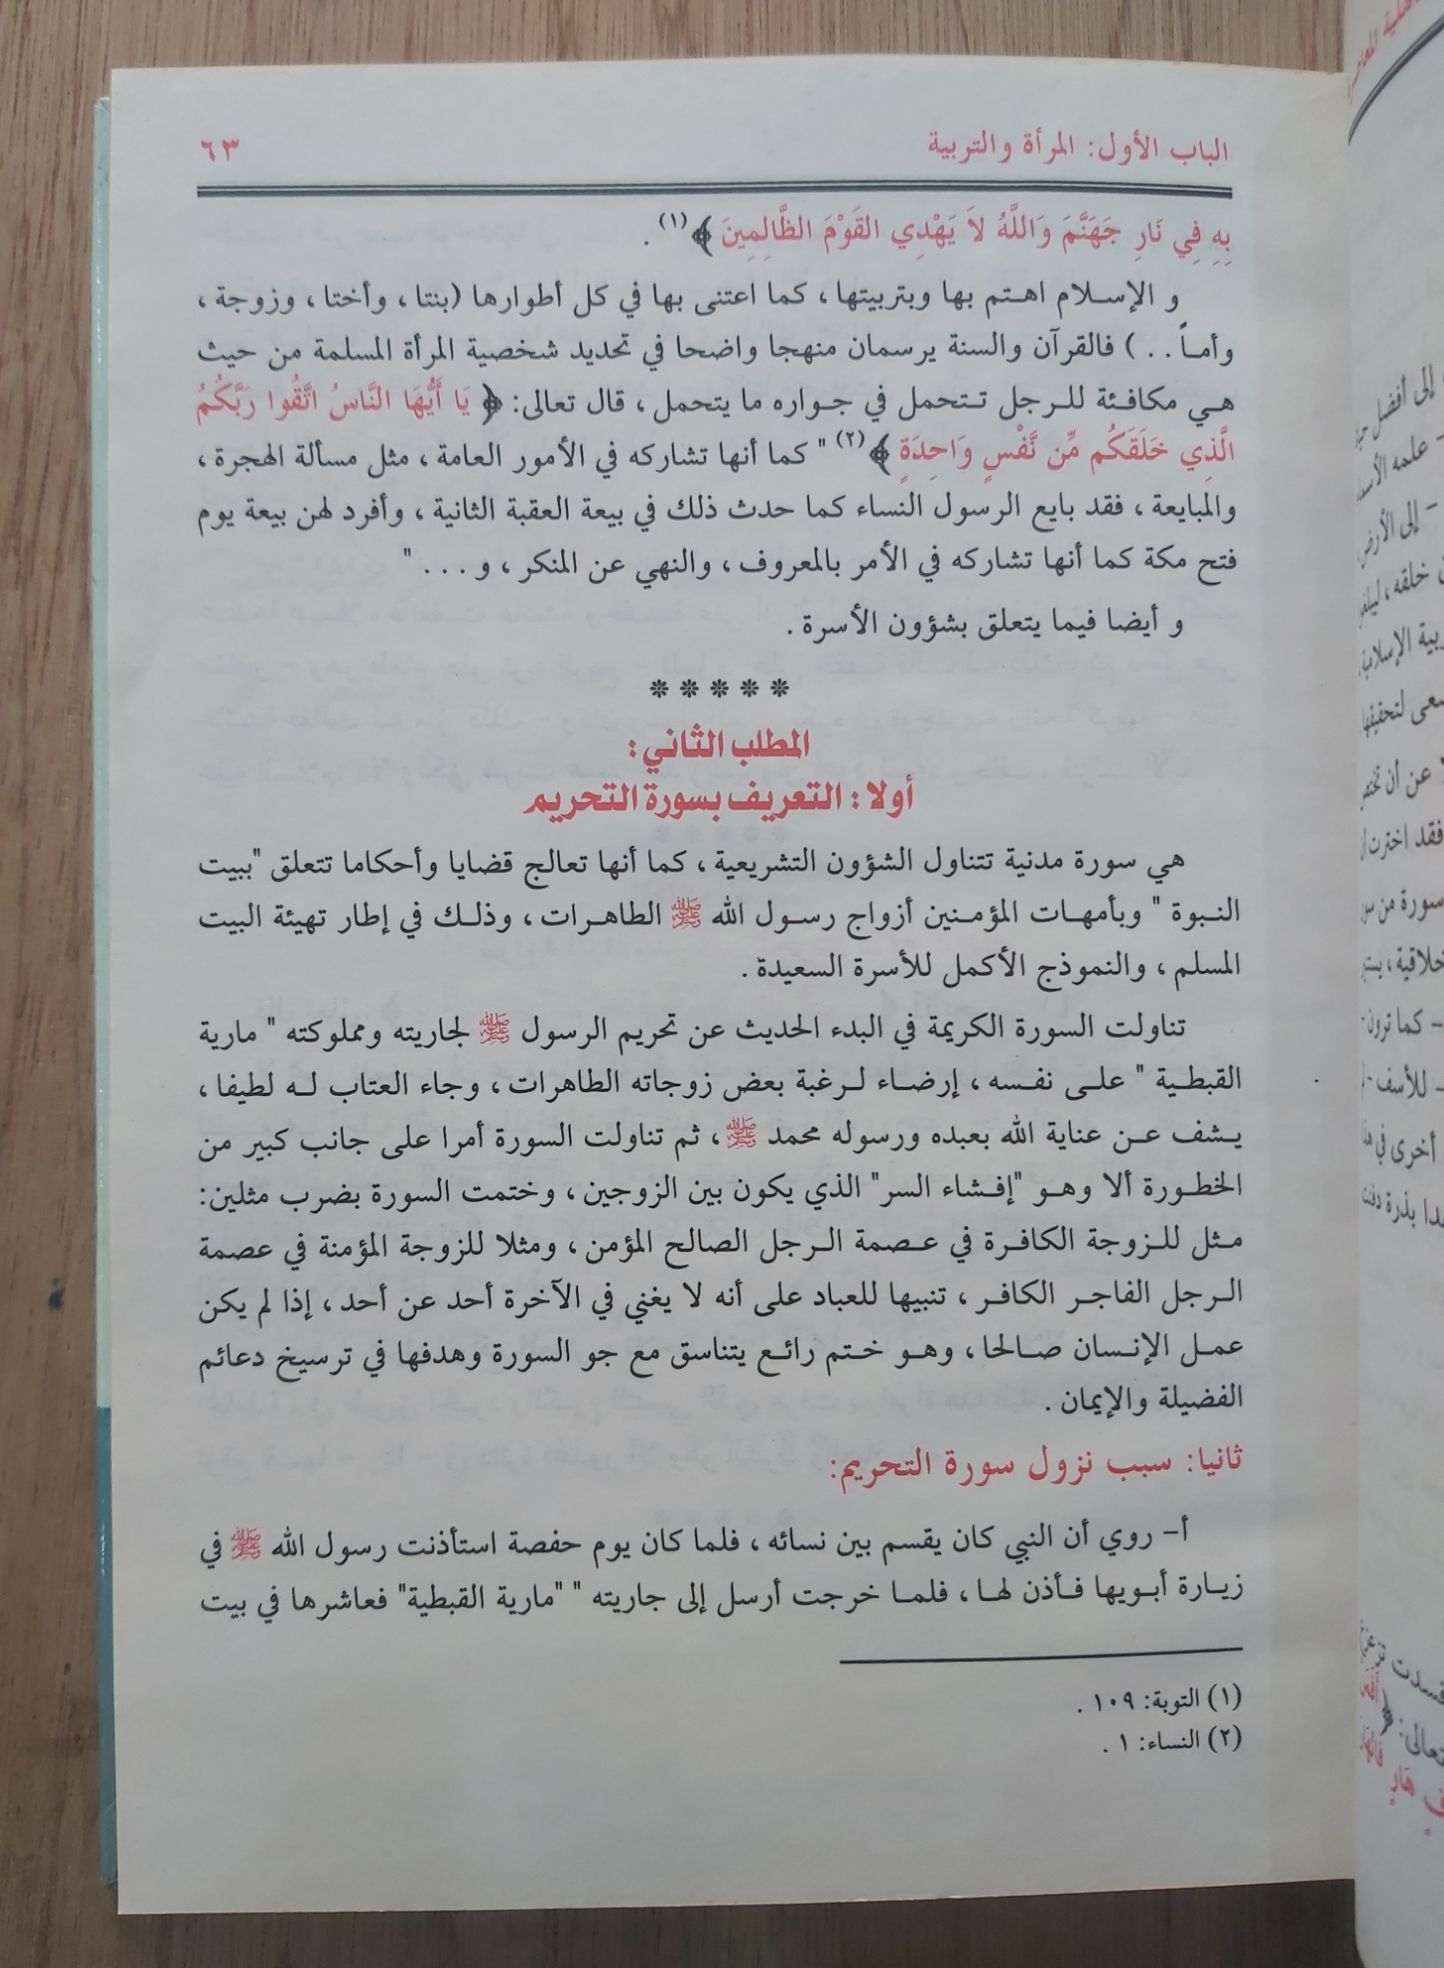 الباب الأول: المرأة والتربية ٦٣
بِهِ فِي نَارِ جَهَنَّمَ وَاللَّهُ لاَ يَهْدِي القَوْمَ الظَّالِمِينَ ﴾(١) .
و الإسلام اهتم بها وبتربيتها ، كما اعتنى بها في كل أطوارها (بنتا ، وأختا ، وزوجة ،
وأماً . . ) فالقرآن والسنة يرسمان منهجا واضحا في تحديد شخصية المرأة المسلمة من حيث
هي مكافئة للرجل تتحمل في جواره ما يتحمل ، قال تعالى: ﴿ يَا أَيُّهَا النَّاسُ اتَّقُوا رَبَّكُمُ
الَّذِي خَلَقَكُم مِّن نَّفْسٍ وَاحِدَةٍ ﴾(٢) " كما أنها تشاركه في الأمور العامة ، مثل مسألة الهجرة ،
والمبايعة ، فقد بايع الرسول النساء كما حدث ذلك في بيعة العقبة الثانية ، وأفرد لهن بيعة يوم
فتح مكة كما أنها تشاركه في الأمر بالمعروف ، والنهي عن المنكر ، و . . . "
و أيضا فيما يتعلق بشؤون الأسرة .
* * * * *
المطلب الثاني:
أولا : التعريف بسورة التحريم
هي سورة مدنية تتناول الشؤون التشريعية ، كما أنها تعالج قضايا وأحكاما تتعلق "ببيت
النبوة " وبأمهات المؤمنين أزواج رسول الله ﷺ الطاهرات ، وذلك في إطار تهيئة البيت
المسلم ، والنموذج الأكمل للأسرة السعيدة .
تناولت السورة الكريمة في البدء الحديث عن تحريم الرسول ﷺ لجاريته ومملوكته " مارية
القبطية " على نفسه ، إرضاء لرغبة بعض زوجاته الطاهرات ، وجاء العتاب له لطيفا ،
يشف عن عناية الله بعبده ورسوله محمد ﷺ ، ثم تناولت السورة أمرا على جانب كبير من
الخطورة ألا وهو "إفشاء السر" الذي يكون بين الزوجين ، وختمت السورة بضرب مثلين:
مثل للزوجة الكافرة في عصمة الرجل الصالح المؤمن ، ومثلا للزوجة المؤمنة في عصمة
الرجل الفاجر الكافر ، تنبيها للعباد على أنه لا يغني في الآخرة أحد عن أحد ، إذا لم يكن
عمل الإنسان صالحا ، وهو ختم رائع يتناسق مع جو السورة وهدفها في ترسيخ دعائم
الفضيلة والإيمان .
ثانيا: سبب نزول سورة التحريم:
أ- روي أن النبي كان يقسم بين نسائه ، فلما كان يوم حفصة استأذنت رسول الله ﷺ في
زيارة أبويها فأذن لها ، فلما خرجت أرسل إلى جاريته " "مارية القبطية" فعاشرها في بيت
(١) التوبة: ١٠٩ .
(٢) النساء: ١ .
إلى أفضل
- علمه
- إلى الأرض
خلقه ،
الإسلامية
لتحقيقها
عن أن
فقد اخترت
سورة من
- كما ترون -
- للأسف -
أخرى في
بذرة
تعالى: ﴿
هَارٍ